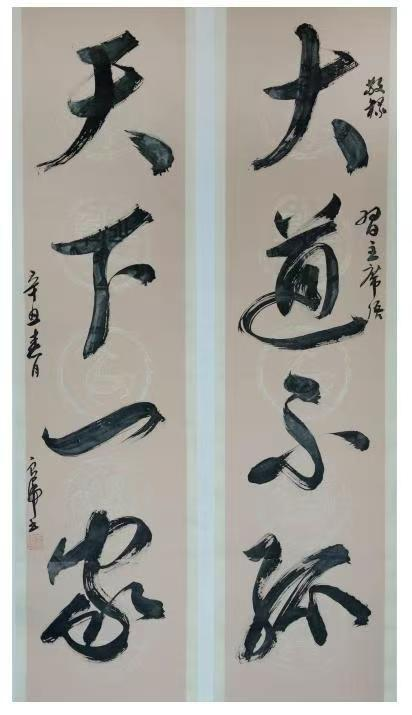 敬撰
习主席语
大道不孤
天下一家
辛丑春月